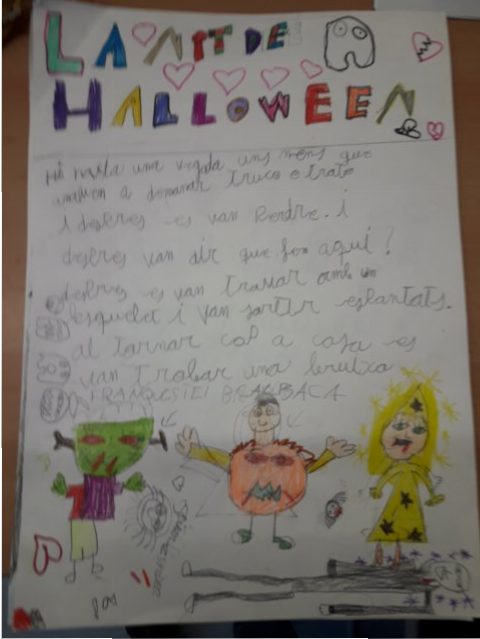 LA NIT DE
HALLOWEEN
Hi havia una vegada uns nens que
anaven a demanar truco o trato
i despres es van perdre. i
despres van dir que fem aquí?
despres es van trobar amb un
esquelet i van sortir espantats.
al tornar cap a casa es
van trobar una bruixa
FRANQUESTEI